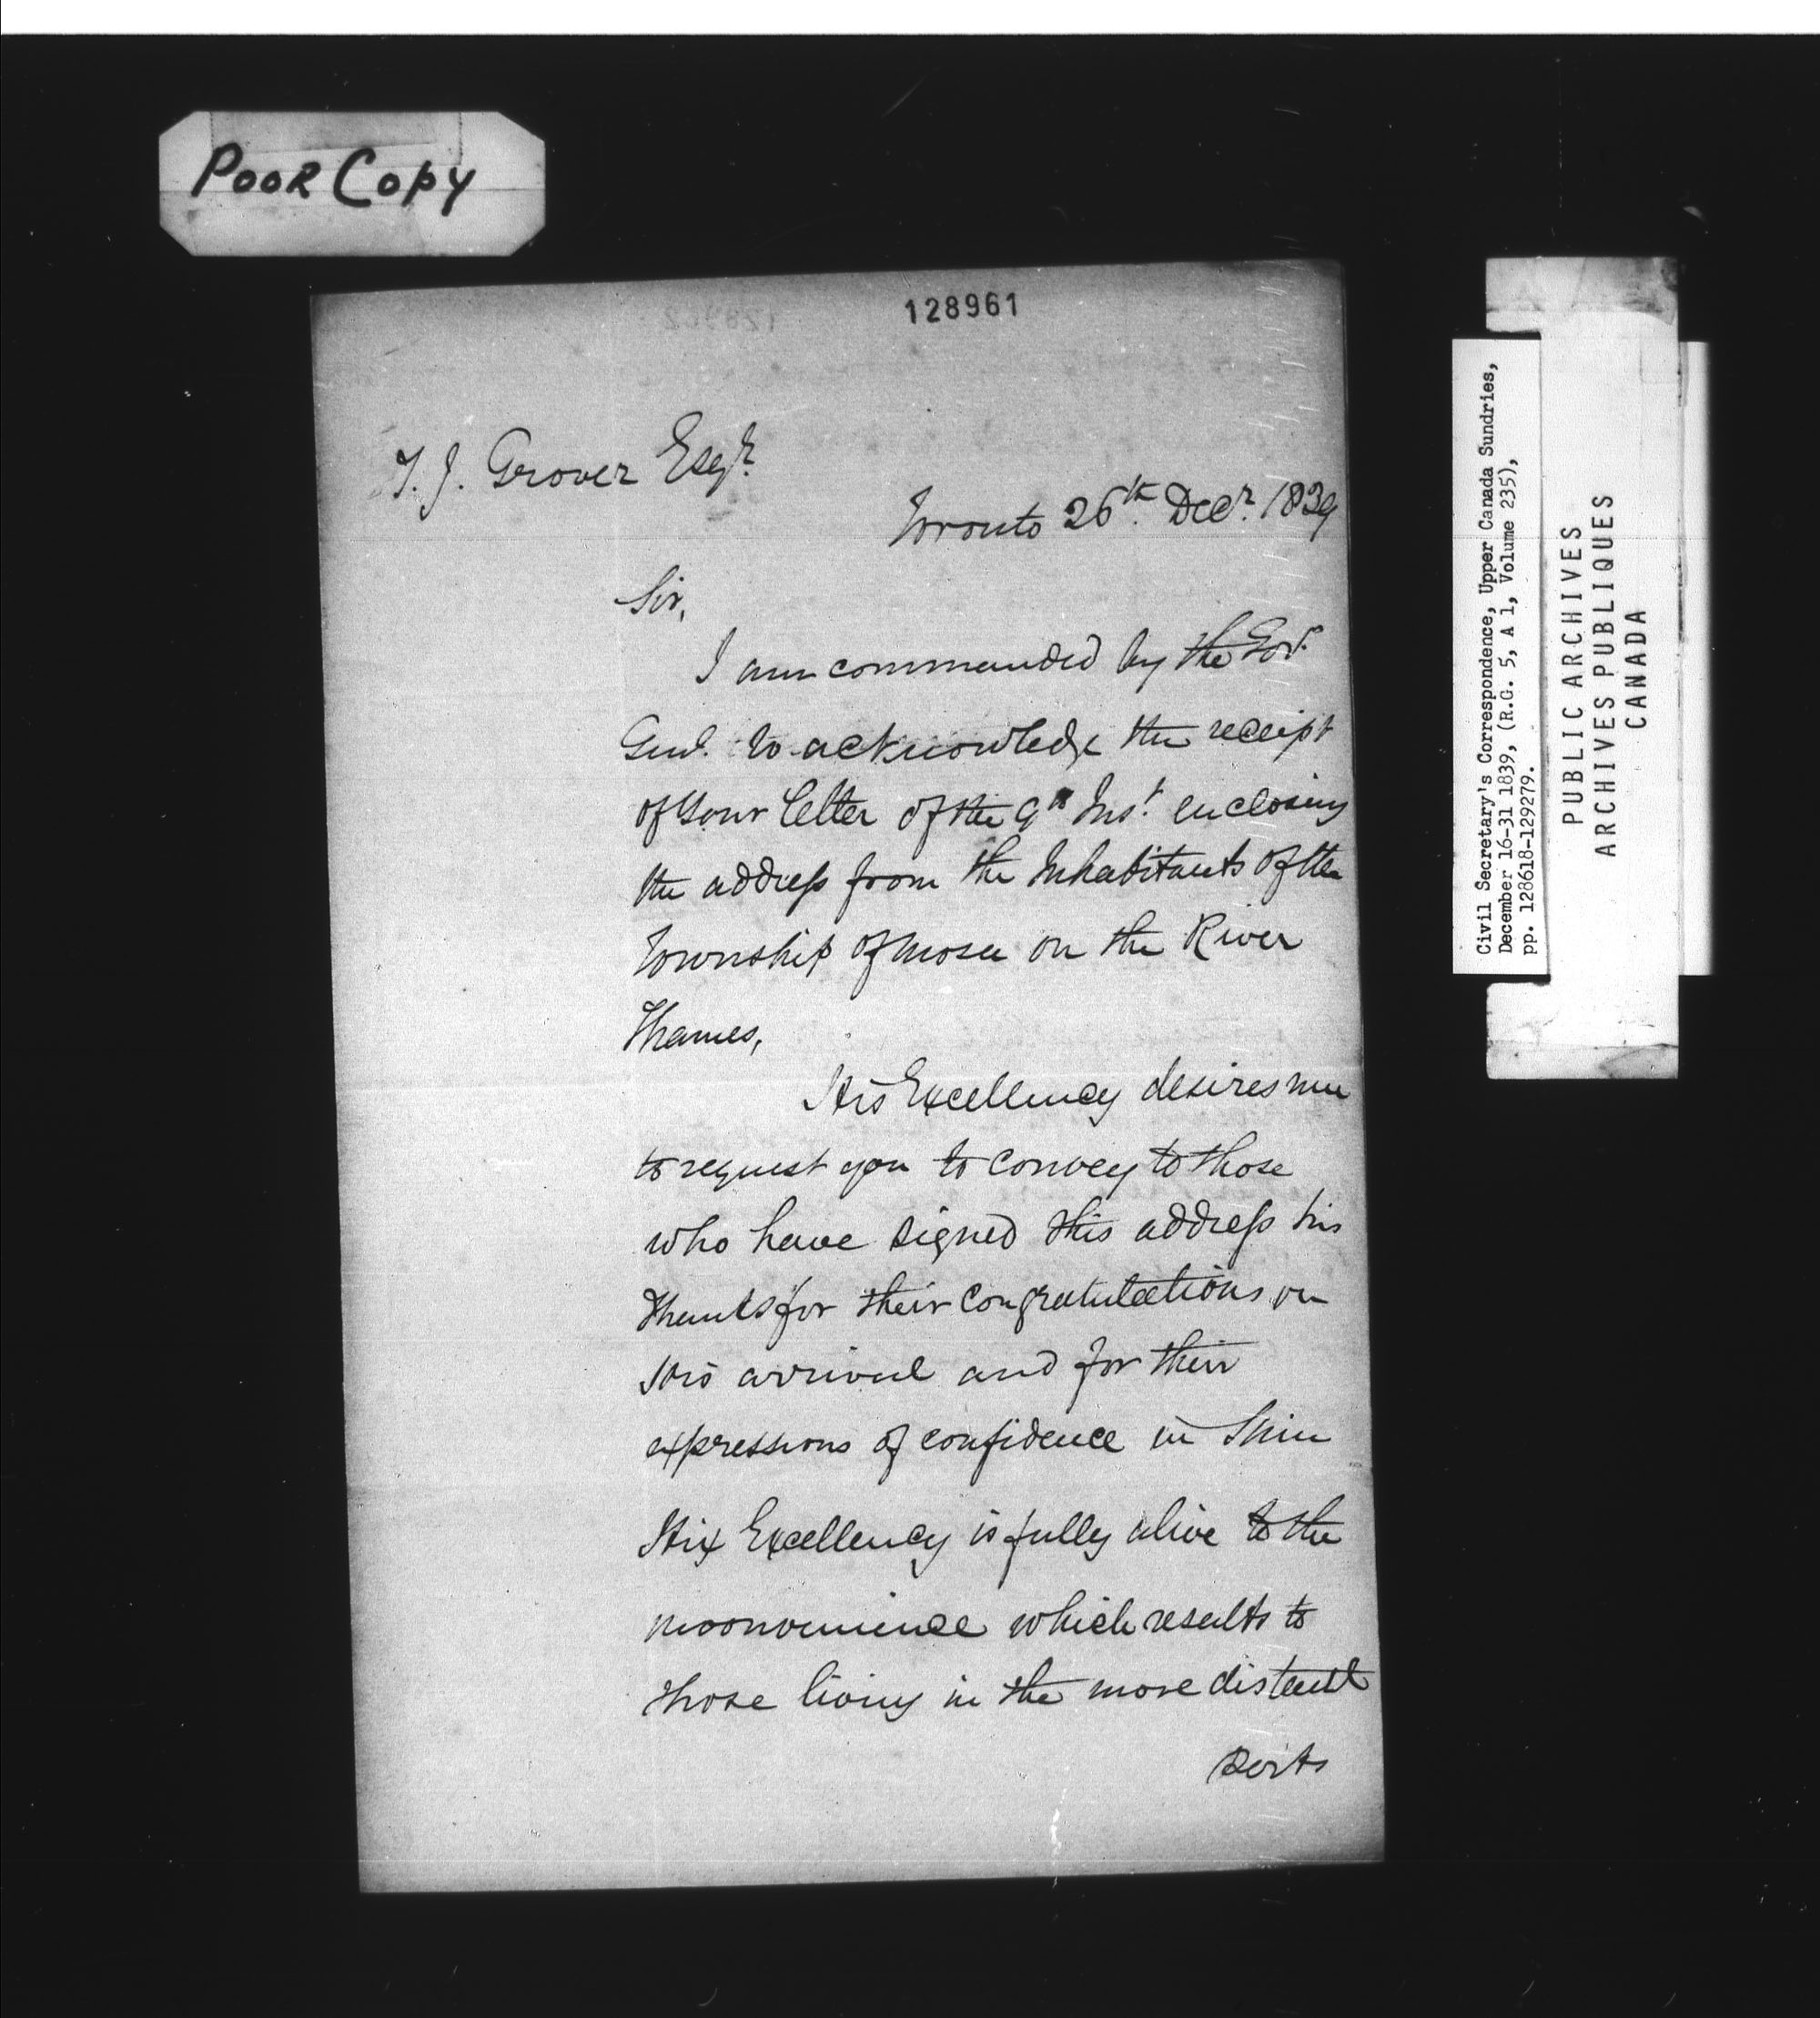 Poor Copy
128961
T. J. Grover Esqr.
Toronto 26th. Decr. 1839
Sir,
I am commanded by the Govr.
Genl. to acknowledge the receipt
of your letter of the 9th Inst. enclosing
the address from the Inhabitants of the
Township of Mosa on the River
Thames,
His Excellency desires me
to request you to convey to those
who have signed this address his
thanks for their congratulations on
His arrival and for their
expressions of confidence in Him
His Excellency is fully alive to the
inconvenience which results to
those living in the more distant
parts
Civil Secretary's Correspondence, Upper Canada Sundries,
December 16-31 1839, (R.G. 5, A 1, Volume 235),
pp. 128618-129279.
PUBLIC ARCHIVES
ARCHIVES PUBLIQUES
CANADA